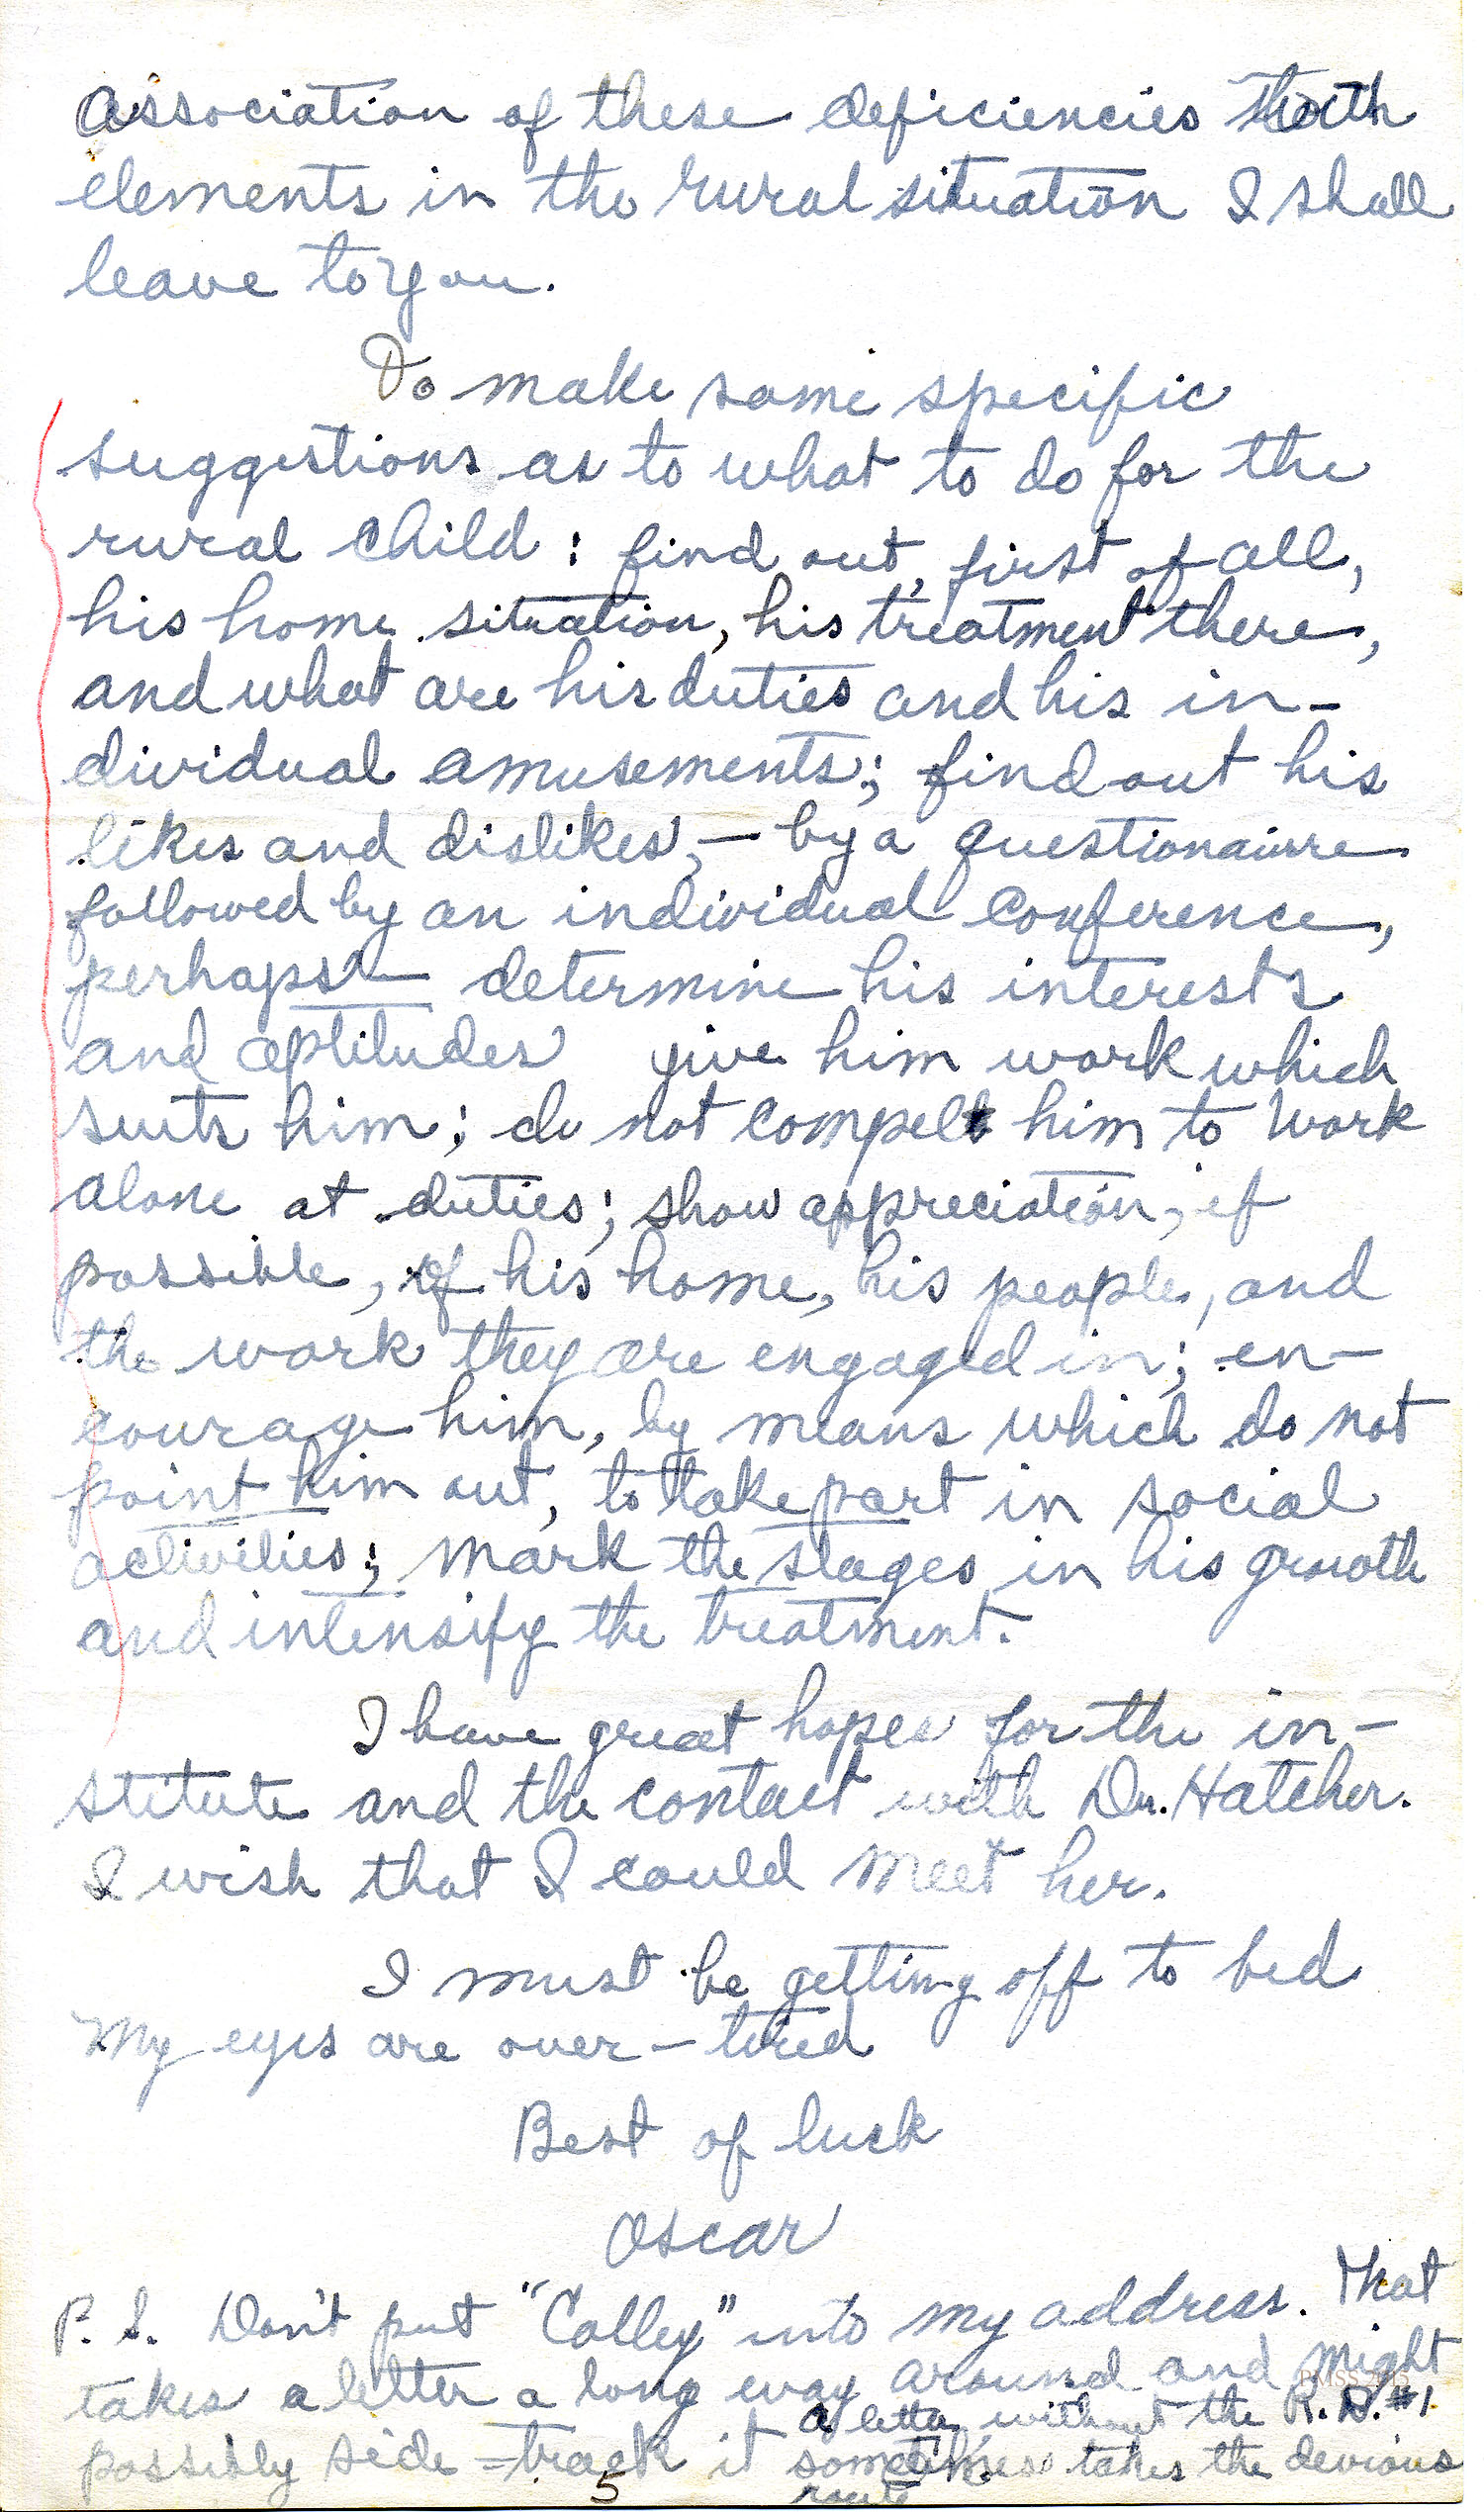 Association of these deficiencies with
elements in the rural situation I shall
leave to you.
To make some specific
suggestions as to what to do for the
rural child: find out, first of all,
his home situation, his treatment there,
and what are his duties and his in-
dividual amusements; find out his
likes and dislikes, — by a questionairre
followed by an individual conference,
perhaps — determine his interests
and aptitudes give him work which
suits him; do not compel him to work
alone at duties; show appreciation, if
possible, of his home, his people, and
the work they are engaged in; en-
courage him, by means which do not
point him out, to take part in social
activities; mark the stages in his growth
and intensify the treatment.
I have great hopes for the in-
stitute and the contact with Dr. Hatcher.
I wish that I could meet her.
I must be getting off to bed
My eyes are over-tired
Best of luck
Oscar
P.S. Don't put "Colley" into my address. That
takes a letter a long way around and might
possibly side-track it a letter without the R.D. #1
sometimes takes the devious
route
5